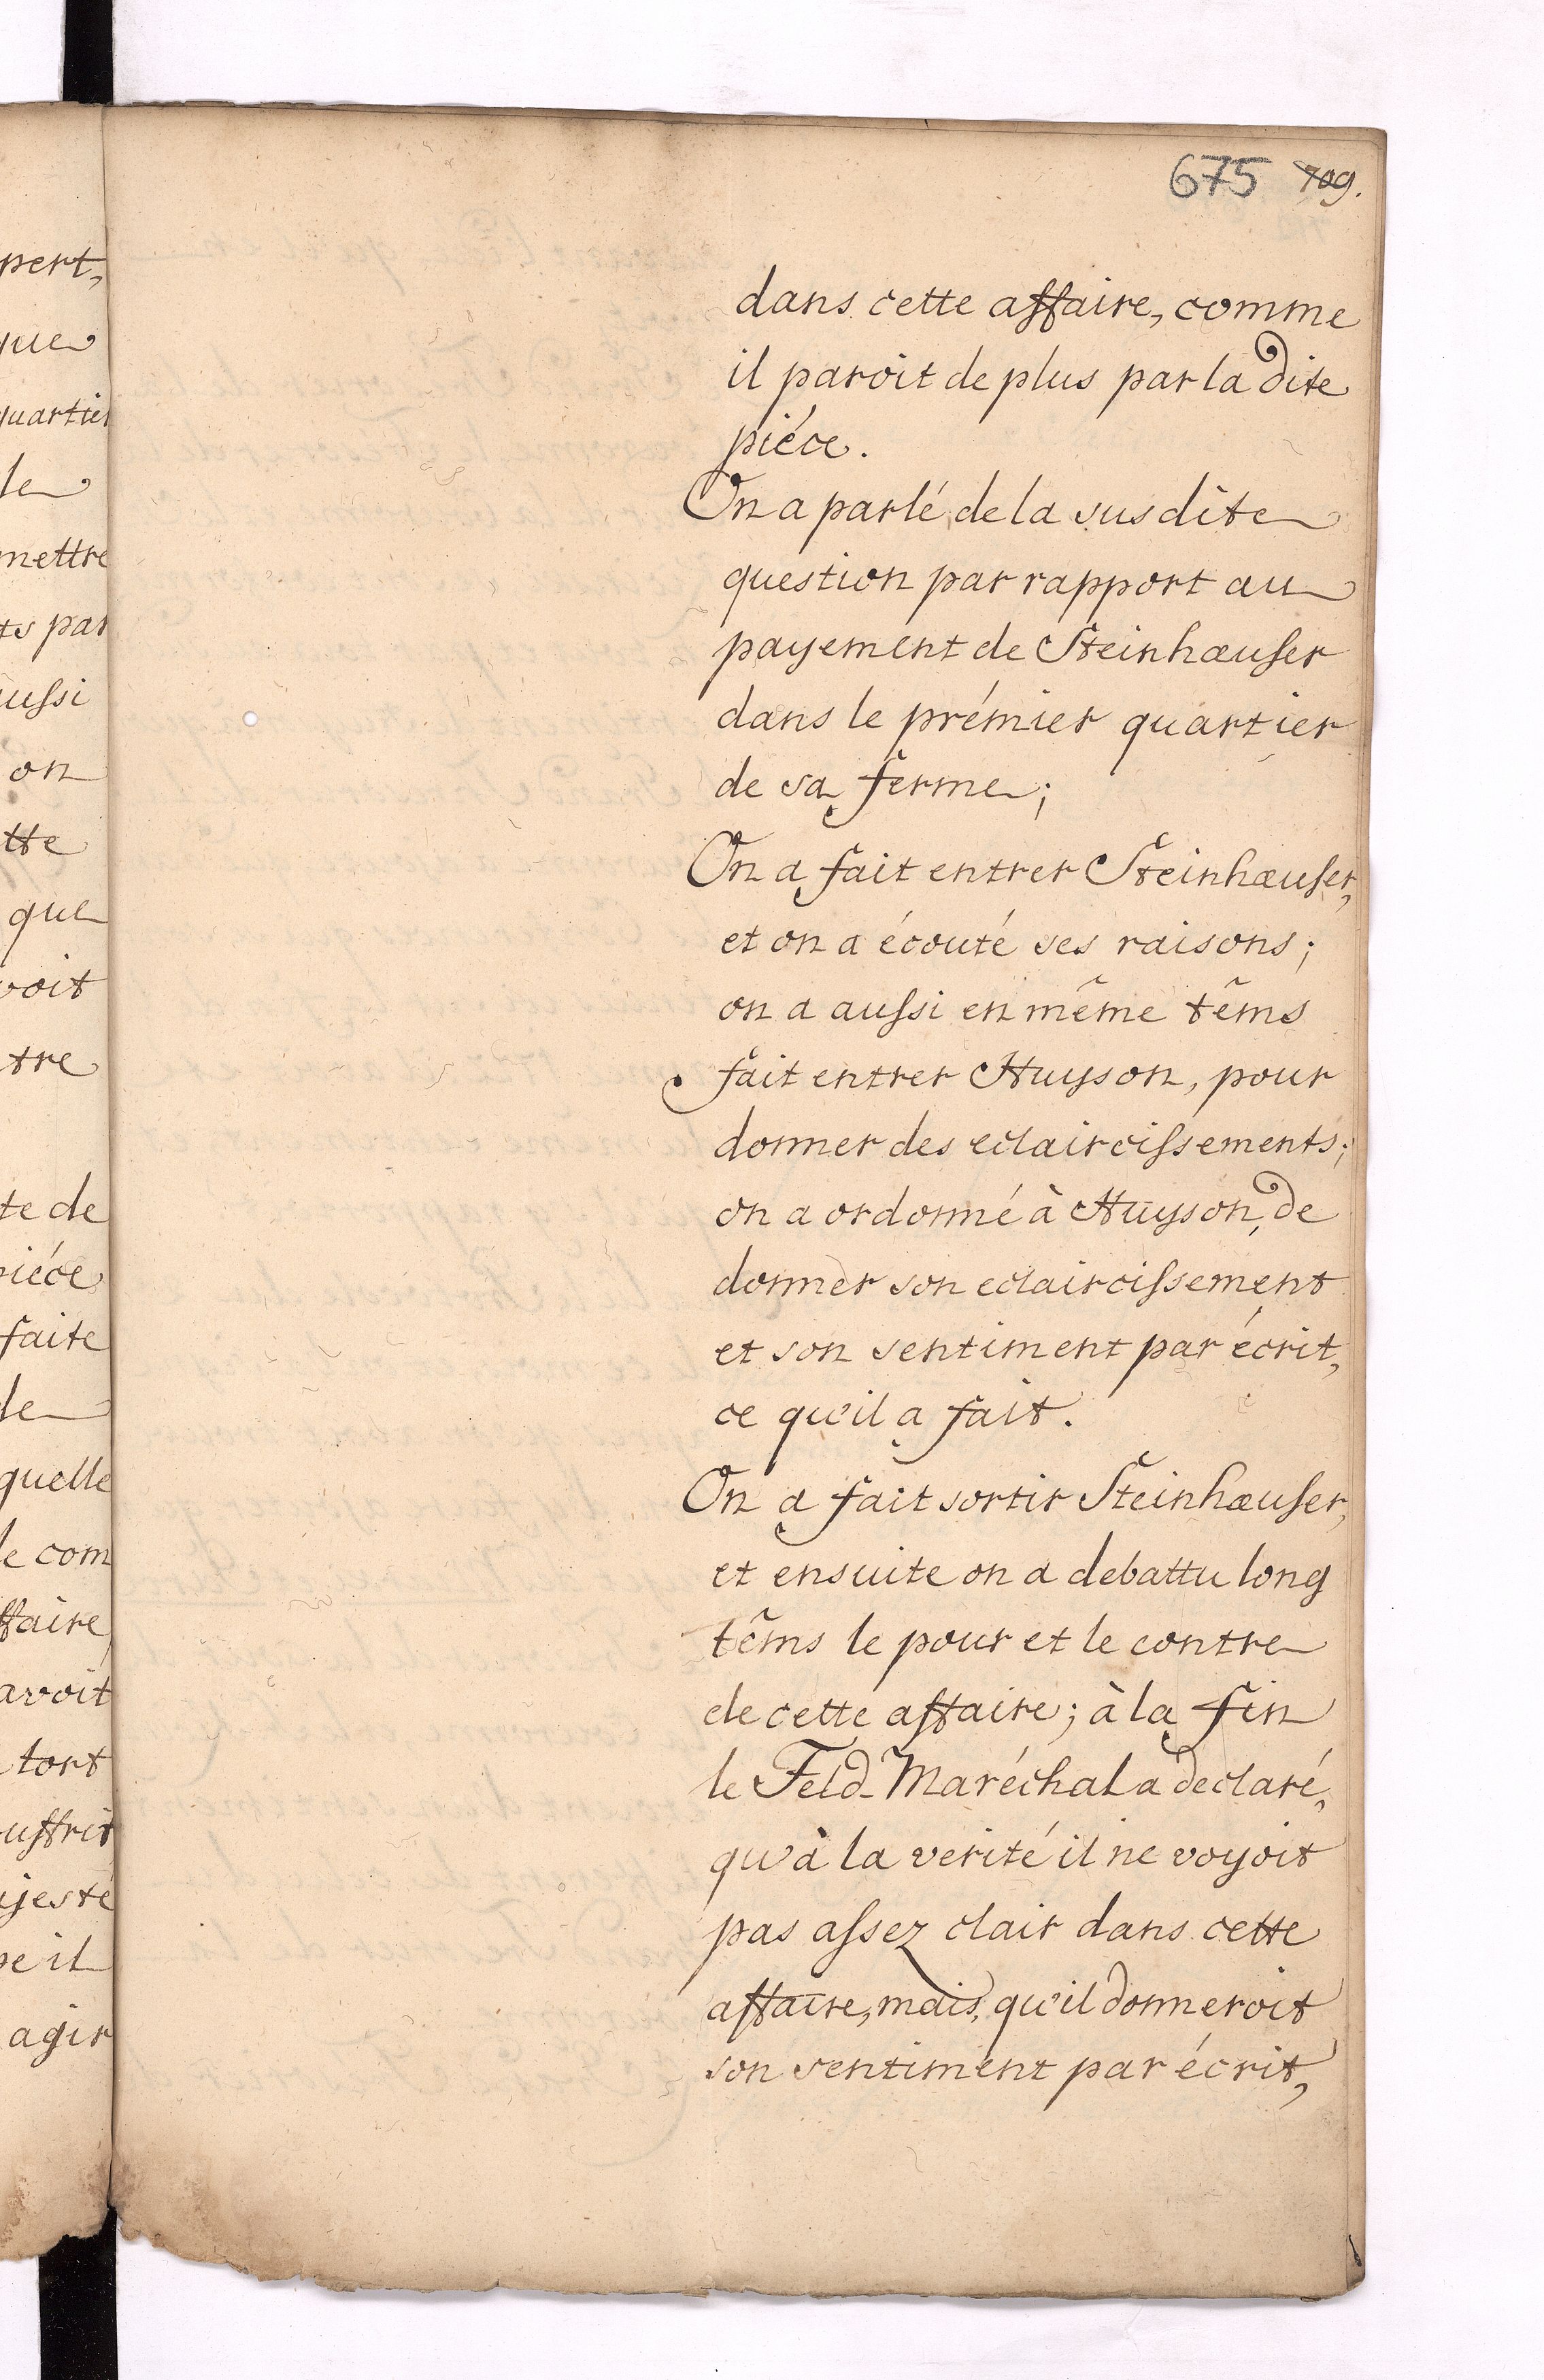 675 709.
dans cette affaire, comme
il paroit de plus par la dite
piéce.
On a parlé de la susdite
question par rapport au
payement de Steinhæuser
dans le prémier quartier
de sa ferme;
On a fait entrer Steinhæuser,
et on a écouté ses raisons;
on a aussi en même têms
fait entrer Huyson, pour
donner des eclaircissements;
on a ordonné à Huyson, de
donner son eclaircissement
et son sentiment par écrit,
ce qu'il a fait.
On a fait sortir Steinhæuser,
et ensuite on a debattu long
têms le pour et le contre
de cette affaire; à la fin
le Feld-Maréchal a declaré,
qu'à la verité il ne voyoit
pas assez clair dans cette
affaire, mais, qu'il donneroit
son sentiment par écrit,
pert,
que
quartier
le
mettre
ts par
aussi
on
tte
que
voit
tre
te de
piéce
faite
le
quelle
le com
ffaire,
avoit
tort
uffrir
ajesté
il
agir